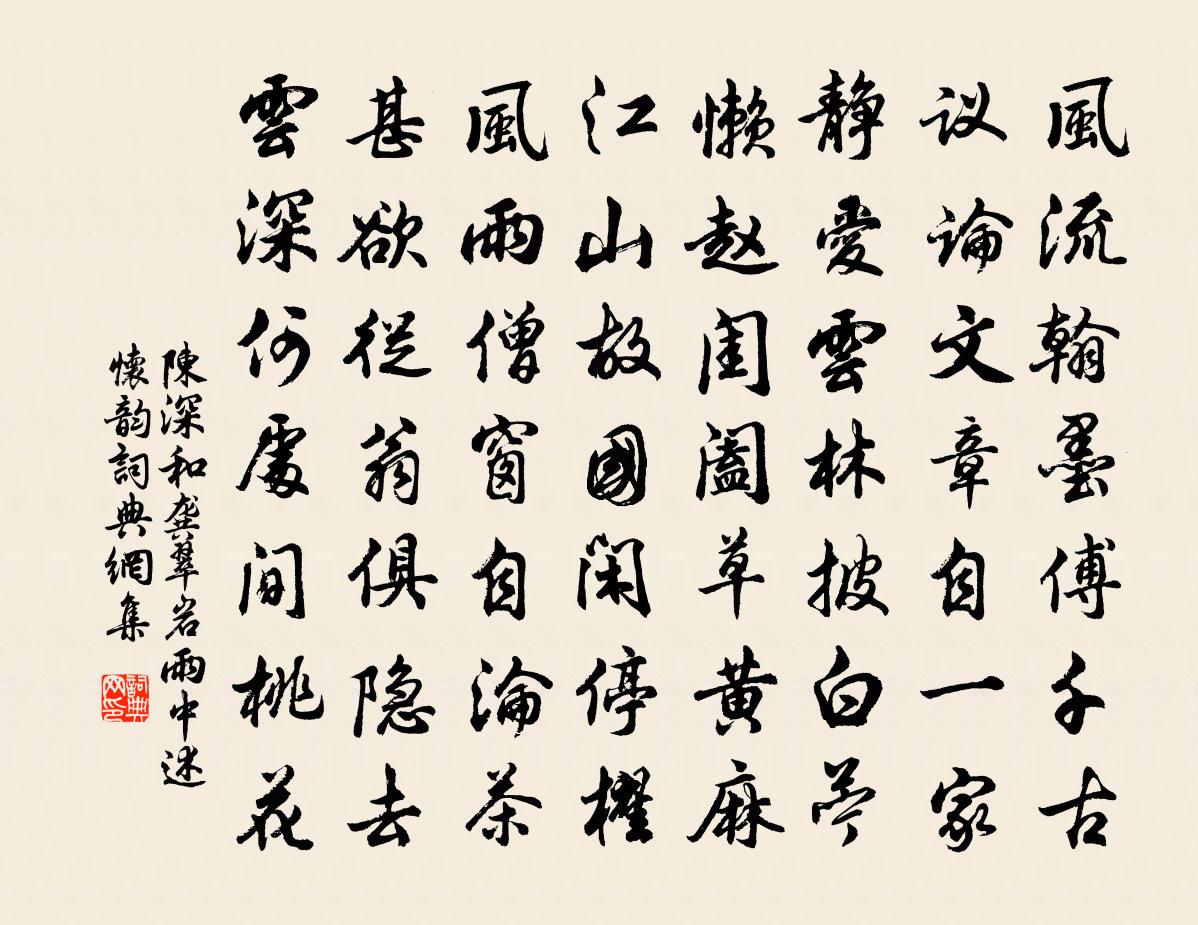 風流翰墨傅千古
议論文章自一家
静愛雲林披白苎
懒赵閨阖草黄麻
江山故國闲停櫂
風雨僧窗自淪茶
甚欲從翁俱隐去
雲深何處間桃花
陳深和龚翠岩雨中述
懷韵詞典網集
詞典
网印